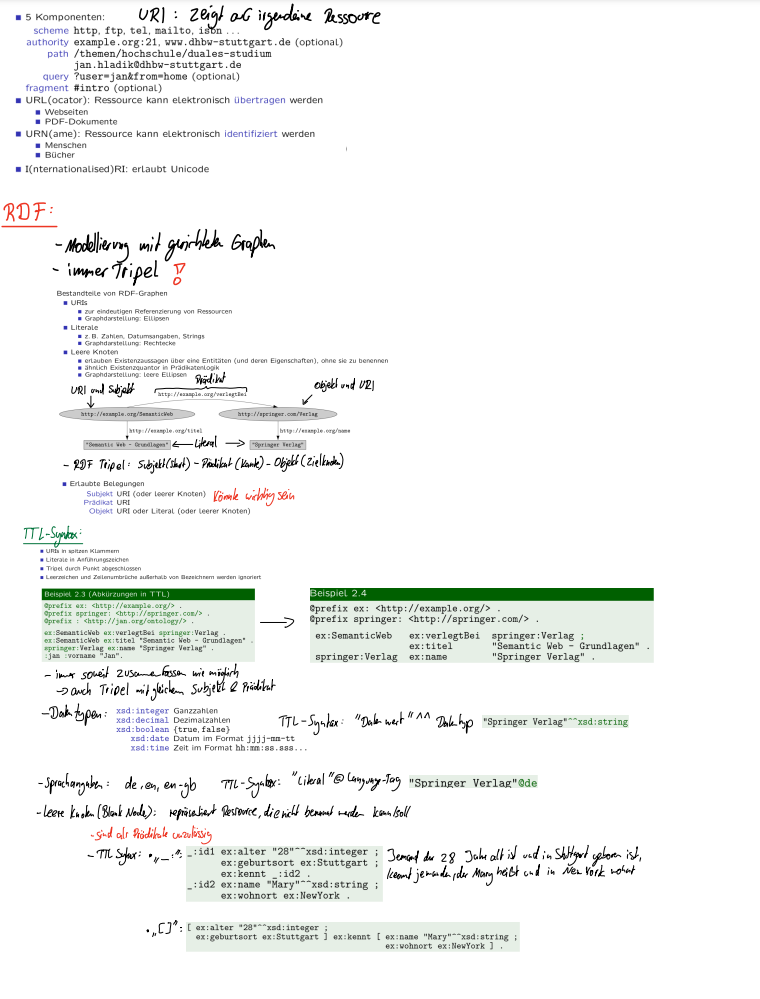 URI : zeigt auf irgendeine Ressource
■ 5 Komponenten:
scheme http, ftp, tel, mailto, isbn ...
authority example.org:21, www.dhbw-stuttgart.de (optional)
path /themen/hochschule/duales-studium
jan.hladik@dhbw-stuttgart.de
query ?user=jan&from=home (optional)
fragment #intro (optional)
■ URL(ocator): Ressource kann elektronisch übertragen werden
■ Webseiten
■ PDF-Dokumente
■ URN(ame): Ressource kann elektronisch identifiziert werden
■ Menschen
■ Bücher
■ I(nternationalised)RI: erlaubt Unicode
RDF:
- Modellierung mit gerichteten Graphen
- immer Tripel !
Bestandteile von RDF-Graphen
■ URIs
■ zur eindeutigen Referenzierung von Ressourcen
■ Graphdarstellung: Ellipsen
■ Literale
■ z. B. Zahlen, Datumsangaben, Strings
■ Graphdarstellung: Rechtecke
■ Leere Knoten
■ erlauben Existenzaussagen über eine Entitäten (und deren Eigenschaften), ohne sie zu benennen
■ ähnlich Existenzquantor in Prädikatenlogik
■ Graphdarstellung: leere Ellipsen
Prädikat
URI und Subjekt
Objekt und URI
http://example.org/verlegtBei
http://example.org/SemanticWeb
http://springer.com/Verlag
http://example.org/titel
http://example.org/name
"Semantic Web - Grundlagen" ← Literal → "Springer Verlag"
- RDF Tripel: Subjekt(Start) - Prädikat (Kante) - Objekt (Zielknoten)
■ Erlaubte Belegungen
Subjekt URI (oder leerer Knoten) Könnte wichtig sein
Prädikat URI
Objekt URI oder Literal (oder leerer Knoten)
TTL-Syntax:
■ URIs in spitzen Klammern
■ Literale in Anführungszeichen
■ Tripel durch Punkt abgeschlossen
■ Leerzeichen und Zeilenumbrüche außerhalb von Bezeichnern werden ignoriert
Beispiel 2.3 (Abkürzungen in TTL)
@prefix ex: <http://example.org/> .
@prefix springer: <http://springer.com/> .
@prefix : <http://jan.org/ontology/> .
ex:SemanticWeb ex:verlegtBei springer:Verlag .
ex:SemanticWeb ex:titel "Semantic Web - Grundlagen" .
springer:Verlag ex:name "Springer Verlag" .
:jan :vorname "Jan".
Beispiel 2.4
@prefix ex: <http://example.org/> .
@prefix springer: <http://springer.com/> .
ex:SemanticWeb ex:verlegtBei springer:Verlag ;
ex:titel "Semantic Web - Grundlagen" .
springer:Verlag ex:name "Springer Verlag" .
- immer soweit zusammenfassen wie möglich
→ auch Tripel mit gleichem Subjekt & Prädikat
- Datentypen: xsd:integer Ganzzahlen
xsd:decimal Dezimalzahlen
xsd:boolean {true,false}
xsd:date Datum im Format jjjj-mm-tt
xsd:time Zeit im Format hh:mm:ss.sss...
TTL-Syntax: "Datenwert"^^Datentyp "Springer Verlag"^^xsd:string
- Sprachangaben: de, en, en-gb TTL-Syntax: "Literal"@Language-Tag "Springer Verlag"@de
- leere Knoten (Blank Node): repräsentiert Ressource, die nicht benannt werden kann/soll
- sind als Prädikate unzulässig
- TTL Syntax: • „_:": _:id1 ex:alter "28"^^xsd:integer ;
ex:geburtsort ex:Stuttgart ;
ex:kennt _:id2 .
_:id2 ex:name "Mary"^^xsd:string ;
ex:wohnort ex:NewYork .
Jemand der 28 Jahre alt ist und in Stuttgart geboren ist,
kennt jemanden, der Mary heißt und in New York wohnt
• „[]": [ ex:alter "28"^^xsd:integer ;
ex:geburtsort ex:Stuttgart ] ex:kennt [ ex:name "Mary"^^xsd:string ;
ex:wohnort ex:NewYork ] .